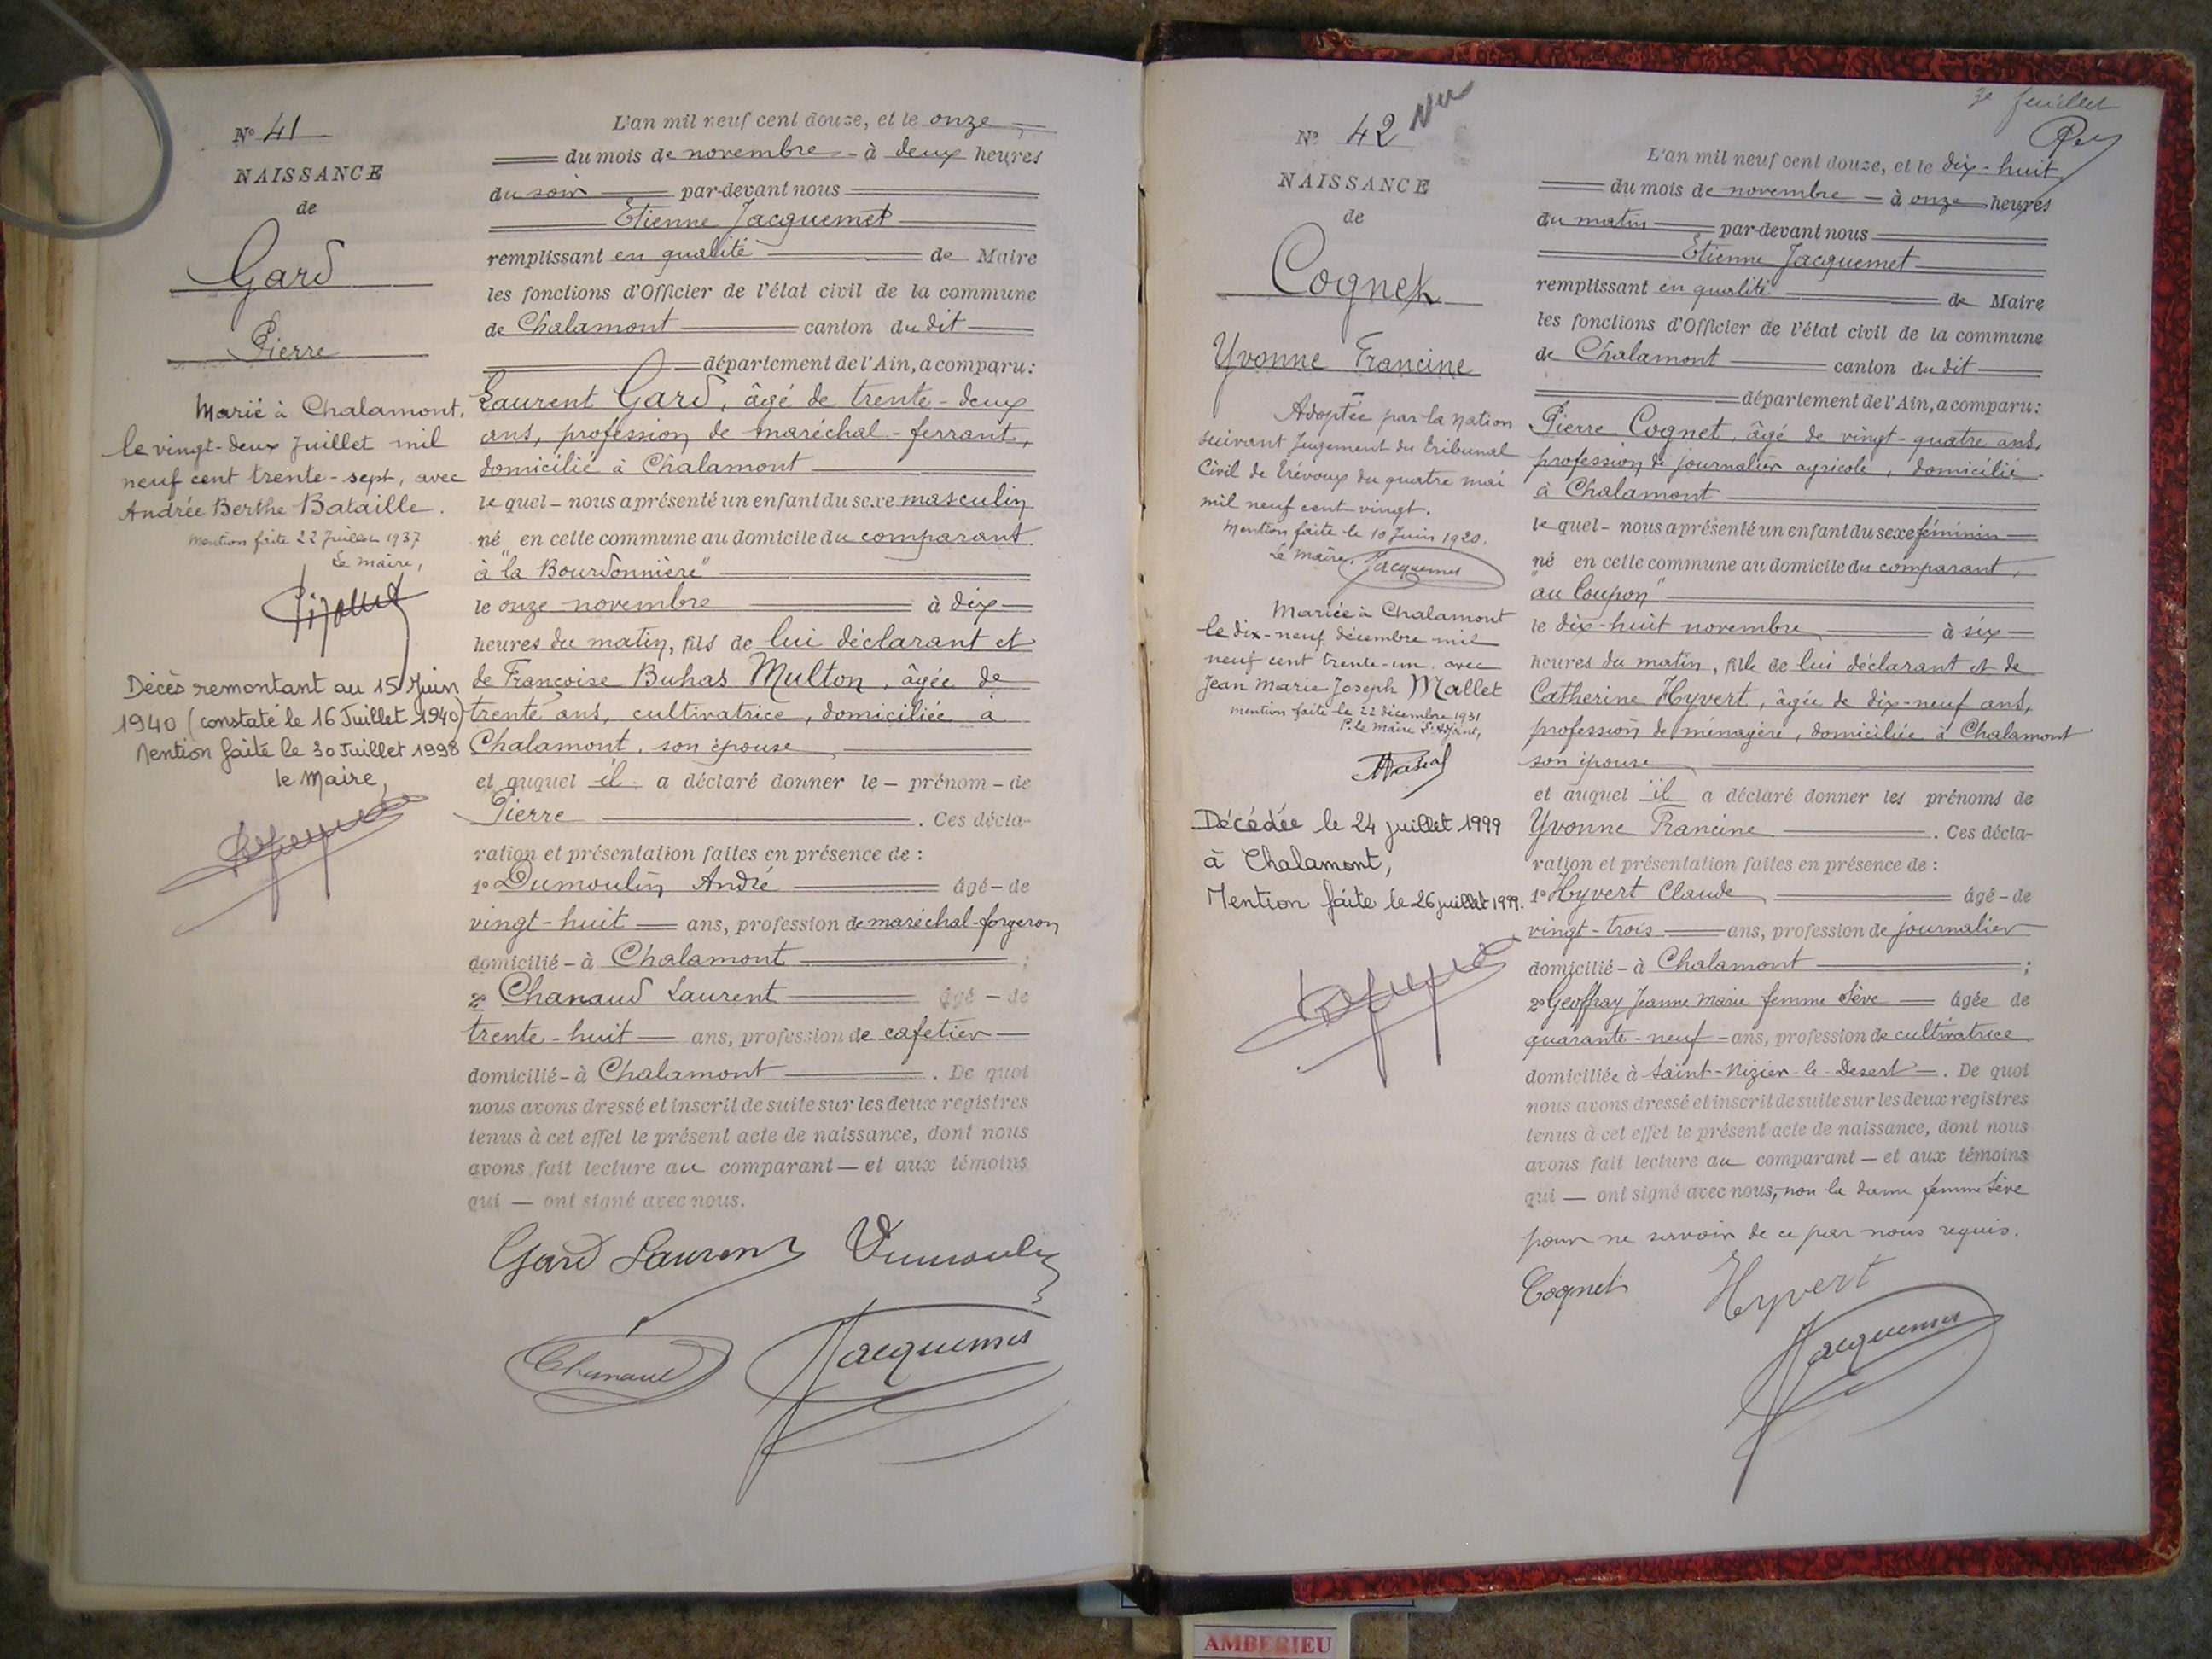 Nº 41
NAISSANCE
de
Gard
Pierre
Marié à Chalamont,
le vingt-deux Juillet mil
neuf cent trente-sept, avec
Andrée Berthe Bataille.
Mention faite 22 Juillet 1937
Le Maire,
Décès remontant au 15 Juin
1940 (constaté le 16 Juillet 1940)
Mention faite le 30 Juillet 1998
le Maire,
L'an mil neuf cent douze, et le onze
du mois de novembre - à deux heures
du soir par-devant nous
Etienne Jacquemet
remplissant en qualité de Maire
les fonctions d'Officier de l'état civil de la commune
de Chalamont canton du dit
département de l'Ain, a comparu:
Laurent Gard, âgé de trente-deux
ans, profession de maréchal-ferrant,
domicilié à Chalamont
le quel - nous a présenté un enfant du sexe masculin
né en cette commune au domicile du comparant
à "la Bourdonnière"
le onze novembre à dix
heures du matin, fils de lui déclarant et
de Françoise Buhas Multon, âgée de
trente ans, cultivatrice, domiciliée à
Chalamont, son épouse
et auquel il a déclaré donner le - prénom - de
Pierre . Ces décla-
ration et présentation faites en présence de :
1º Dumoulin André âgé - de
vingt-huit ans, profession de maréchal-forgeron
domicilié - à Chalamont ;
2º Chanaud Laurent âgé - de
trente-huit ans, profession de cafetier
domicilié - à Chalamont . De quoi
nous avons dressé et inscrit de suite sur les deux registres
tenus à cet effet le présent acte de naissance, dont nous
avons fait lecture au comparant - et aux témoins
qui - ont signé avec nous.
Gard Laurent Dumoulin
Chanaud Jacquemet
Nº 42 Nu
NAISSANCE
de
Cognet
Yvonne Francine
Adoptée par la Nation
suivant Jugement du Tribunal
Civil de Trévoux du quatre mai
mil neuf cent vingt.
Mention faite le 10 Juin 1920.
Le Maire, Jacquemet
Mariée à Chalamont
le dix-neuf décembre mil
neuf cent trente-un avec
Jean Marie Joseph Mallet
Mention faite le 22 décembre 1931
P. le Maire L'Adjoint,
Décédée le 24 juillet 1999
à Chalamont,
Mention faite le 26 juillet 1999.
feuillet
L'an mil neuf cent douze, et le dix-huit
du mois de novembre - à onze heures
du matin par-devant nous
Etienne Jacquemet
remplissant en qualité de Maire
les fonctions d'Officier de l'état civil de la commune
de Chalamont canton du dit
département de l'Ain, a comparu:
Pierre Cognet, âgé de vingt-quatre ans,
profession de journalier agricole, domicilié
à Chalamont
le quel - nous a présenté un enfant du sexe féminin
né en cette commune au domicile du comparant,
"au Coupon"
le dix-huit novembre à six
heures du matin, fille de lui déclarant et de
Catherine Hyvert, âgée de dix-neuf ans,
profession de ménagère, domiciliée à Chalamont
son épouse
et auquel il a déclaré donner les prénoms de
Yvonne Francine . Ces décla-
ration et présentation faites en présence de :
1º Hyvert Claude âgé - de
vingt-trois ans, profession de journalier
domicilié - à Chalamont ;
2º Geoffray Jeanne Marie femme Sève âgée de
quarante-neuf - ans, profession de cultivatrice
domiciliée à Saint-Nizier-le-Desert . De quoi
nous avons dressé et inscrit de suite sur les deux registres
tenus à cet effet le présent acte de naissance, dont nous
avons fait lecture au comparant - et aux témoins
qui - ont signé avec nous, non la dame femme Sève
pour ne savoir de ce par nous requis.
Cognet Hyvert
Jacquemet
AMBERIEU